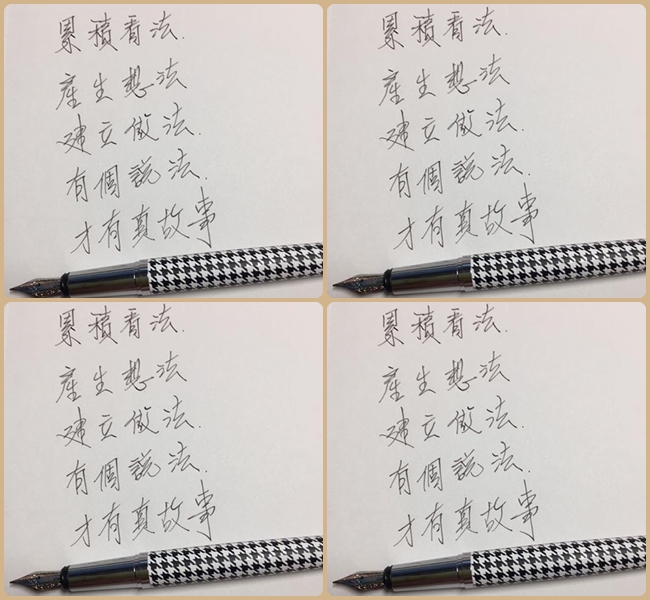 累積看法.
產生想法
建立做法.
有個說法.
才有真故事
累積看法.
產生想法
建立做法.
有個說法.
才有真故事
累積看法.
產生想法
建立做法.
有個說法.
才有真故事
累積看法.
產生想法
建立做法.
有個說法.
才有真故事